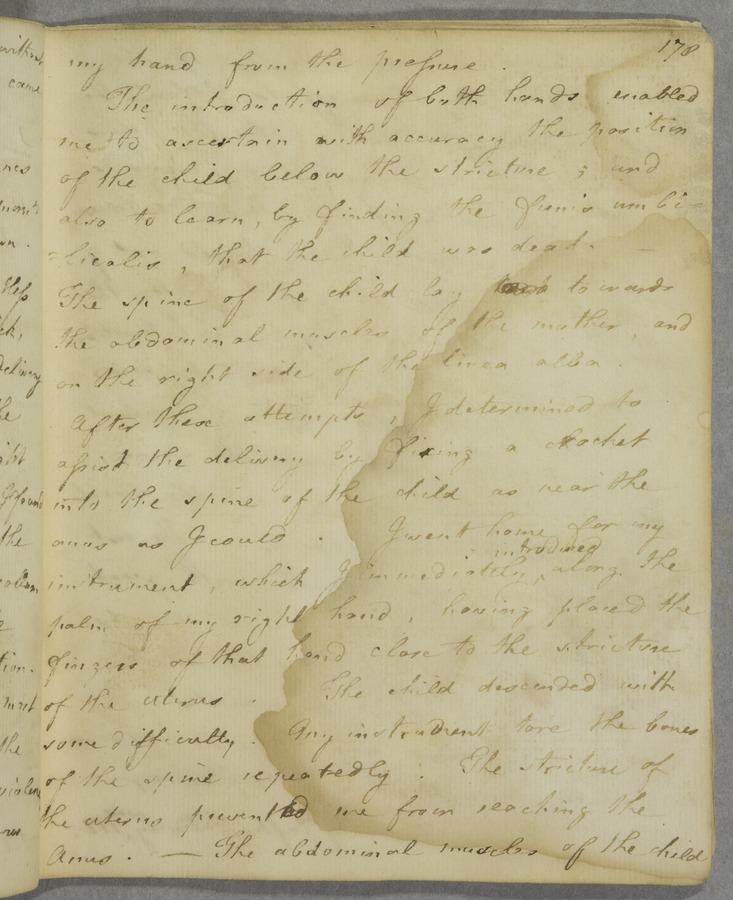 178
my hand from the pressure.
The introduction of both hands enabled
me to ascertain with accuracy the position
of the child below the stricture ; and
also to learn, by finding the funis umbi=
=licalis, that the child was dead. —
The spine of the child lay towards
the abdominal muscles of the mother, and
on the right side of the linea alba.
After these attempts, I determined to
assist the delivery by fixing a crochet
into the spine of the child as near the
anus as I could. I went home for my
introduced
instrument, which I immediately, along the
palm of my right hand, having placed the
fingers of that hand close to the stricture
of the uterus. The child descended with
some difficulty. My instrument tore the bones
of the spine repeatedly. The stricture of
the uterus prevented me from reaching the
Anus. — The abdominal muscles of the child